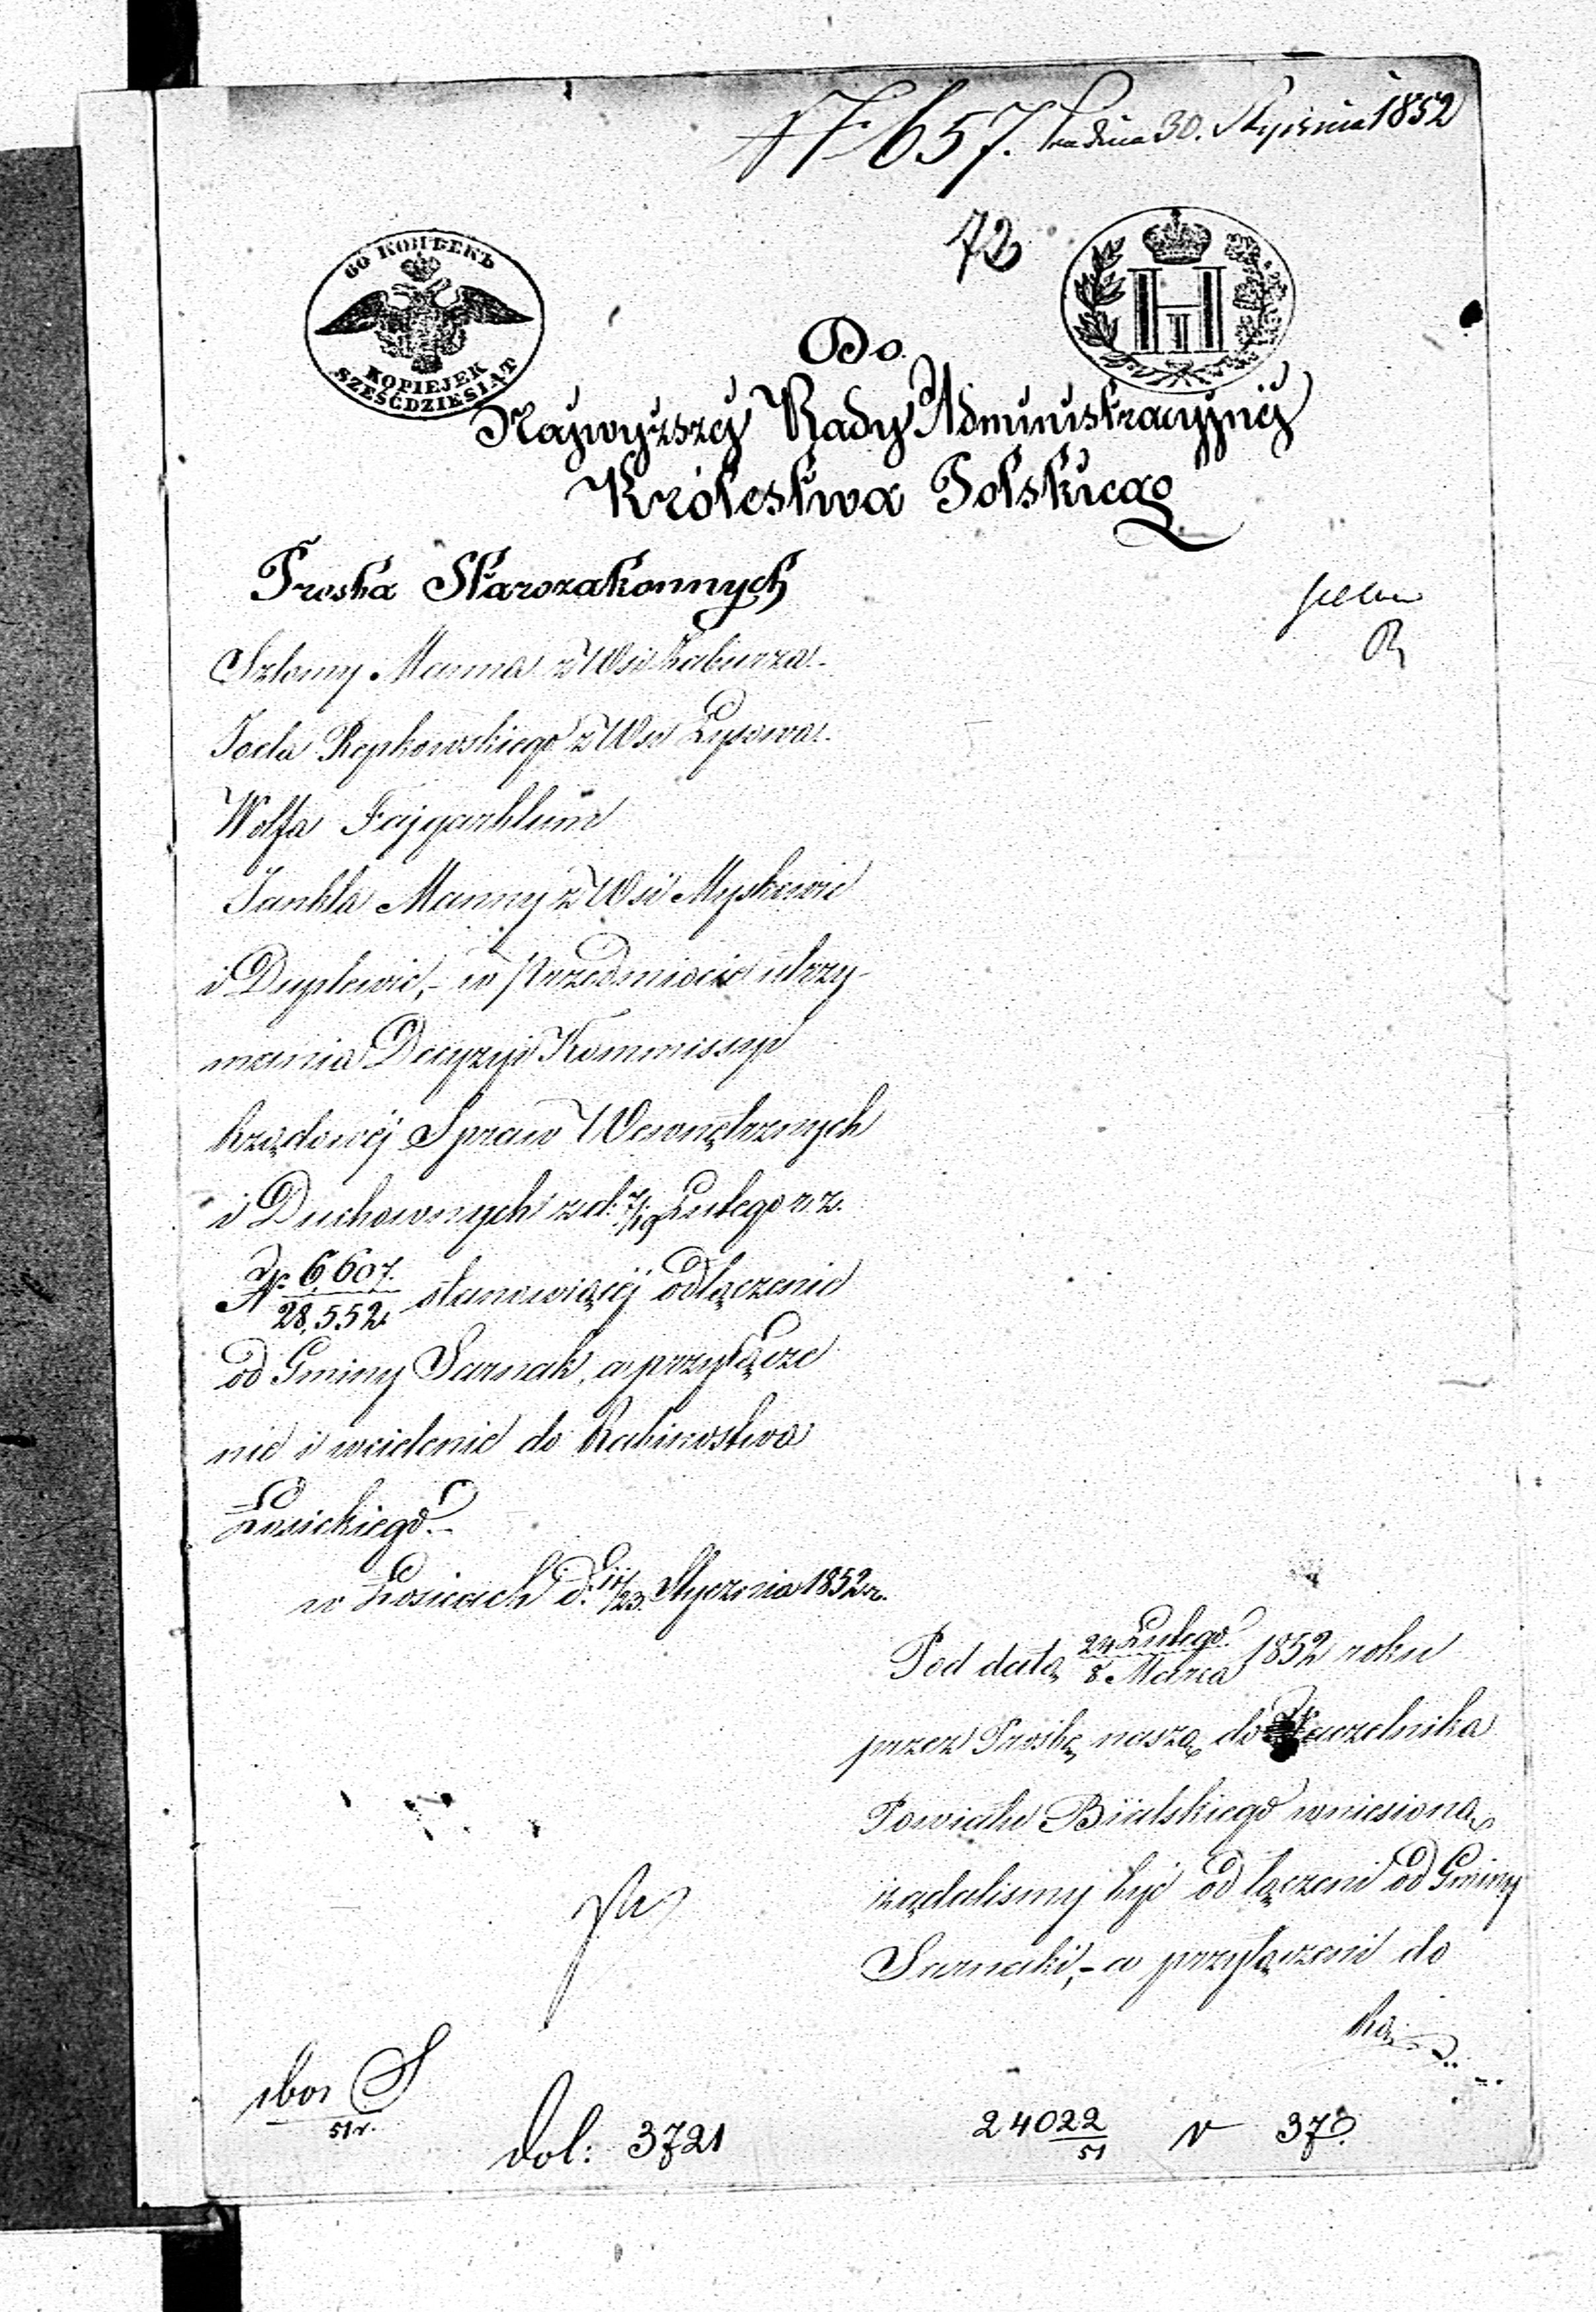 N 657. dnia 30. Stycznia 1852
72
60 КОПѢЕКЪ
KOPIEJEK
SZEŚĆDZIESIĄT
H I
Do
Najwyższej Rady Administracyjnej
Królestwa Polskiego
Prośba Starozakonnych
Szlomy Manna z Wsi Zabuża.
Jocla Repkowskiego z Wsi Łysowa.
Wolfa Fajganblum
Jankla Manny z Wsi Myszkowic
i Duplewic, - w przedmiocie utrzy-
mania Decyzyi Kommissyi
Rządowéj Spraw Wewnętrznych
i Duchownych z d. 7/19 Lutego r. z.
N. 6,607/28,552 stanowiącéj odłączenie
od Gminy Sarnak, a przyłącze
nie i wcielenie do Rabinostwa
Łosickiego.
w Łosicach d. 11/23. Stycznia 1852 r.
Pod datą 24 Lutego/8 Marca 1852 roku
przez Prośbę naszą do Naczelnika
Powiatu Bialskiego wniesioną
żądalismy być od łączeni od Gminy
Sarnaki, - a przyłączeni do
Ra
51 r.
dol: 3721
24022/51 N 37